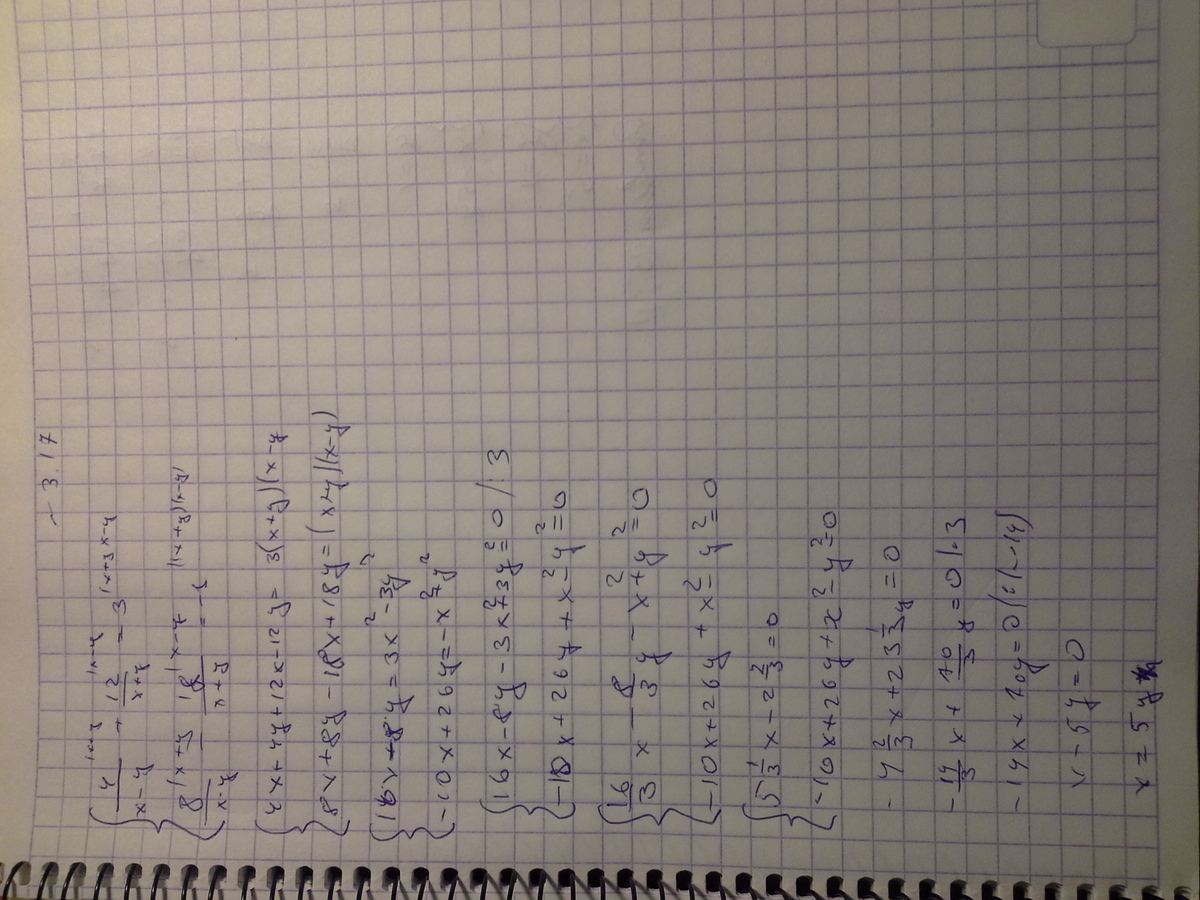 ~ 3.17
{ 4/(x-y) + 12/(x+y) = 3
{ 8/(x-y) - 18/(x+y) = -1
{ 4x+4y+12x-12y = 3(x+y)(x-y
{ 8x+8y-18x+18y = (x+y)(x-y)
{ 16x-8y = 3x²-3y²
{ -10x+26y = -x²+y²
{ 16x-8y-3x²+3y² = 0 /:3
{ -10x+26y+x²-y² = 0
{ 16/3 x - 8/3 y - x²+y² = 0
{ -10x+26y+x²-y² = 0
{ 5 1/3 x - 2 2/3 = 0
{ -10x+26y+x²-y² = 0
- 4 2/3 x + 23 1/3 y = 0
- 14/3 x + 70/3 y = 0 /·3
-14x + 70y = 0 /:(-14)
x - 5y = 0
x = 5y